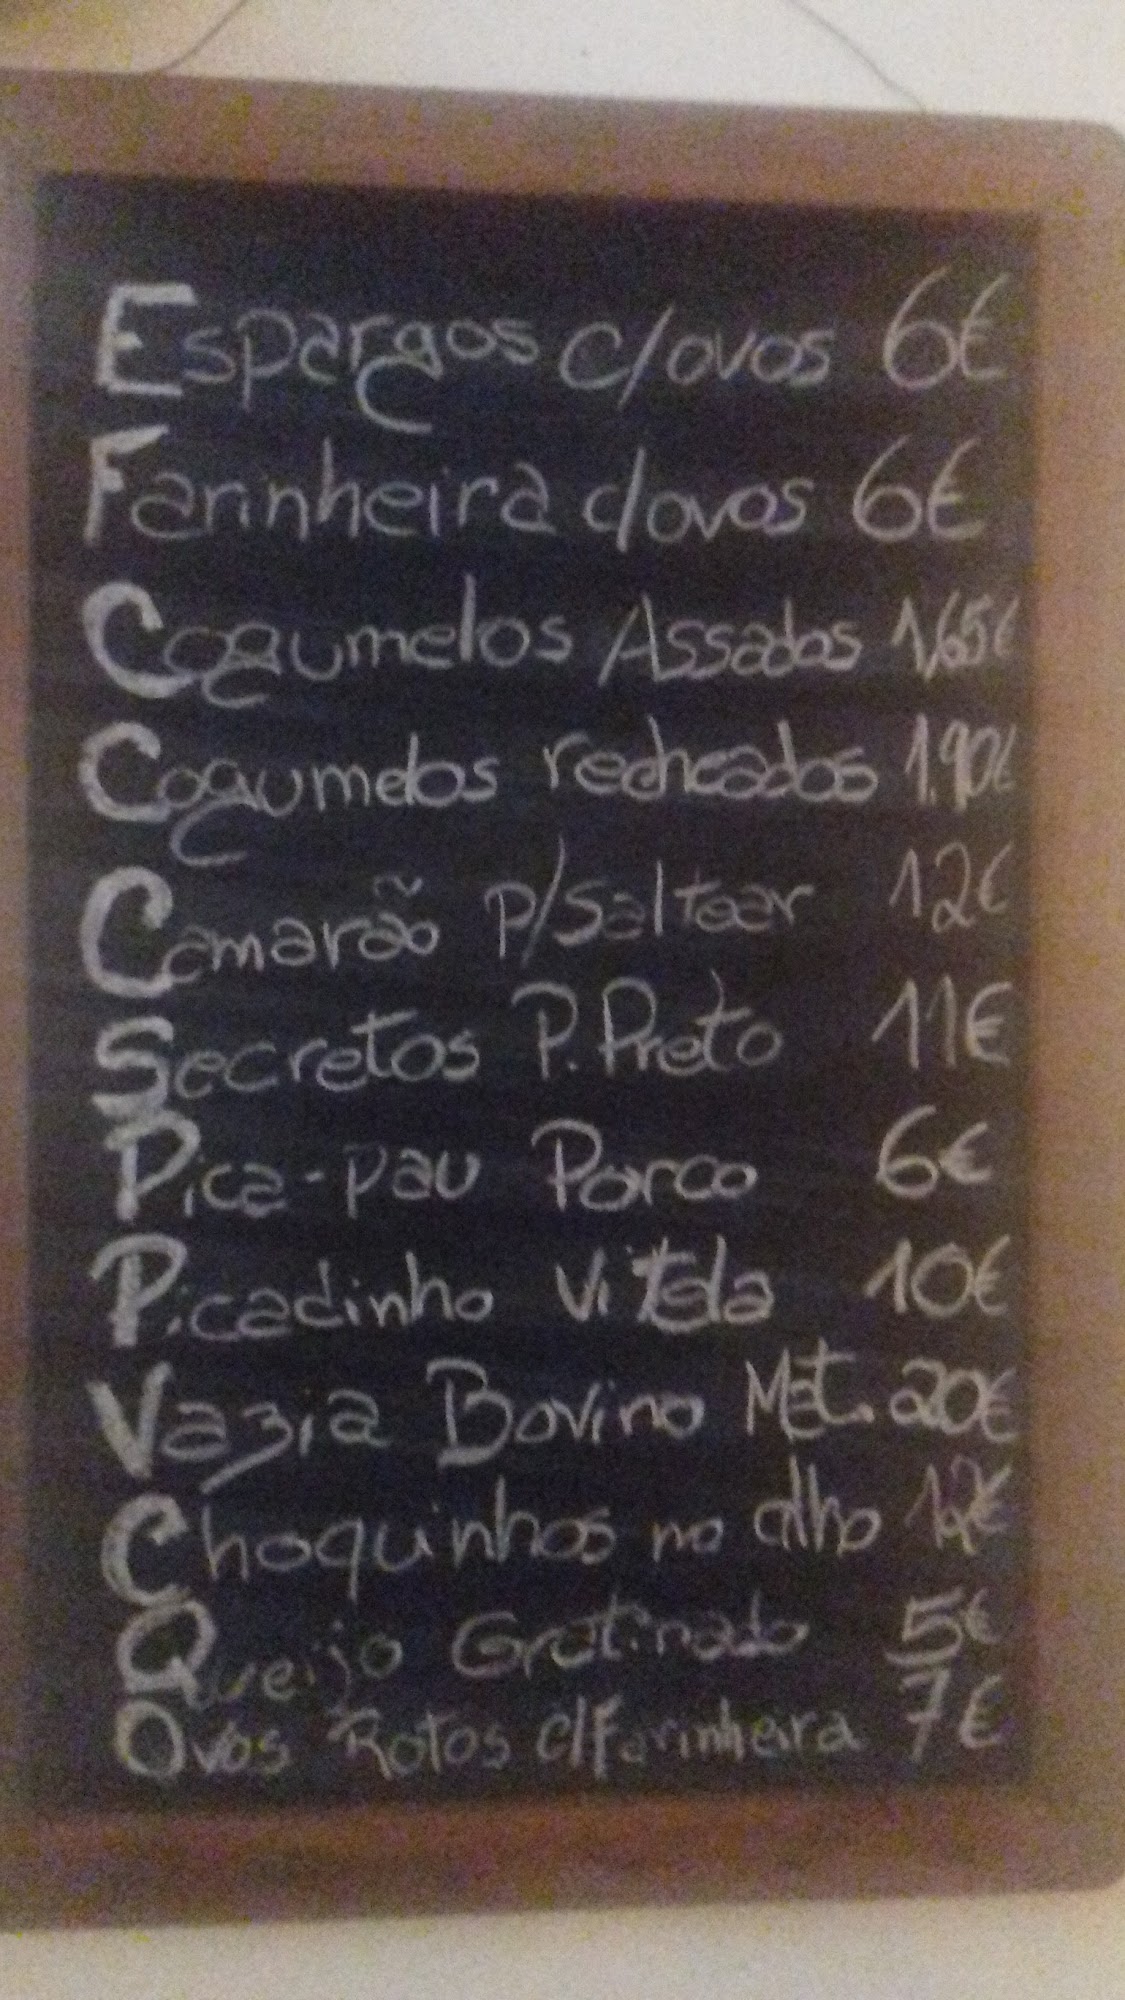 Espargos c/ovos 6€
Farinheira c/ovos 6€
Cogumelos Assados 1,65€
Cogumelos recheados 1.90€
Camarão p/Saltear 12€
Secretos P. Preto 11€
Pica-pau Porco 6€
Picadinho Vitela 10€
Vazia Bovino Mat. 20€
Choquinhos no alho 12€
Queijo Gratinado 5€
Ovos Rotos c/Farinheira 7€